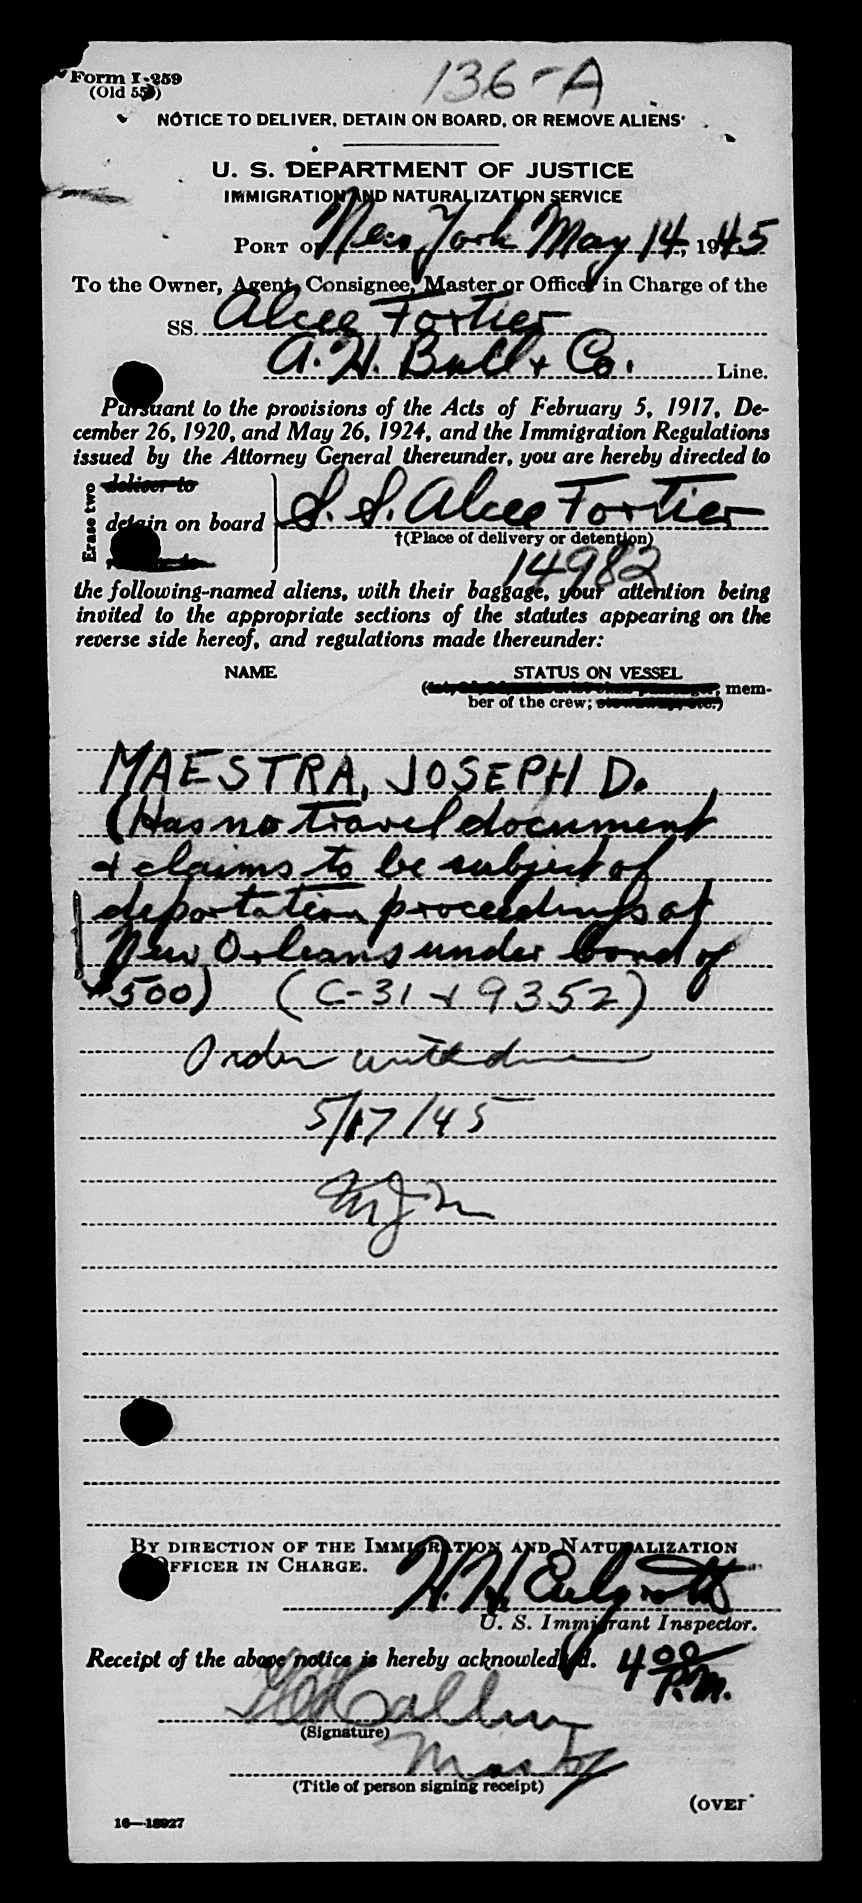 Form I-259
(Old 55)
136-A
NOTICE TO DELIVER, DETAIN ON BOARD, OR REMOVE ALIENS
U. S. DEPARTMENT OF JUSTICE
IMMIGRATION AND NATURALIZATION SERVICE
PORT OF New York May 14, 1945
To the Owner, Agent, Consignee, Master or Officer in Charge of the
SS. Alcee Fortier
A. H. Bull & Co. Line.
Pursuant to the provisions of the Acts of February 5, 1917, De-
cember 26, 1920, and May 26, 1924, and the Immigration Regulations
issued by the Attorney General thereunder, you are hereby directed to
Erase two
deliver to
detain on board
S. S. Alcee Fortier
†(Place of delivery or detention)
14982
the following-named aliens, with their baggage, your attention being
invited to the appropriate sections of the statutes appearing on the
reverse side hereof, and regulations made thereunder:
NAME STATUS ON VESSEL
mem-
ber of the crew;
MAESTRA, JOSEPH D.
(Has no travel document
& claims to be subject of
deportation proceedings at
New Orleans under bond of
$500) (C-31 & 9352)
Order withdrawn
5/17/45
BY DIRECTION OF THE IMMIGRATION AND NATURALIZATION
OFFICER IN CHARGE.
U. S. Immigrant Inspector.
Receipt of the above notice is hereby acknowledged. 4 00 P.M.
(Signature)
Master
(Title of person signing receipt)
(OVER
16—18927